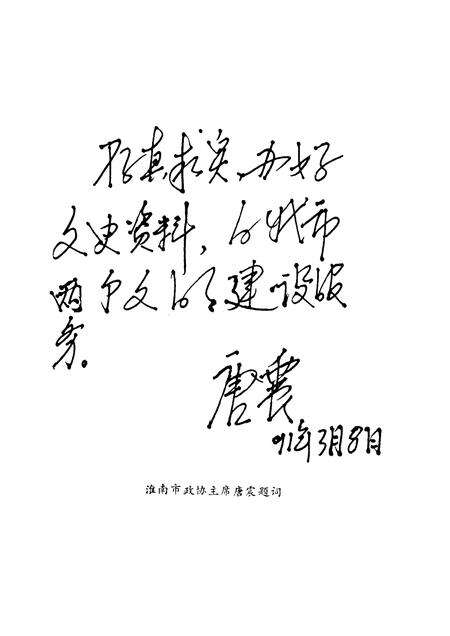 存真求实、办好
文史资料，为我市
两个文明建设服
务。
唐震
91年3月8日
淮南市政协主席唐震题词